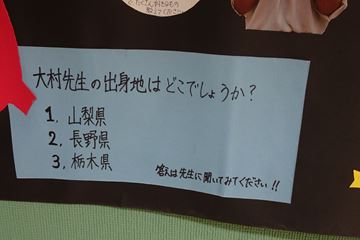 大村先生の出身地はどこでしょうか？
1. 山梨県
2. 長野県
3. 栃木県
答えは先生に聞いてみてください!!